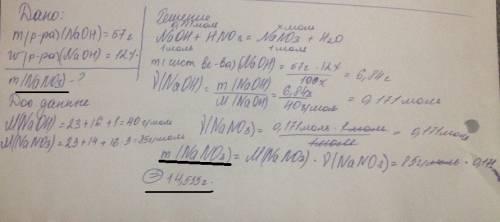 Дано:
m(р-ра)(NaOH)=57г
w(р-ра)(NaOH)=12%
m(NaNO3)-?
Доп данные
M(NaOH)=23+16+1=40г/моль
M(NaNO3)=23+14+16·3=85г/моль
Решение
0,171моль x моль
NaOH + HNO3 = NaNO3 + H2O
1моль 1моль
m(чист ве-ва)(NaOH) = 57г · 12% / 100% = 6,84г
ν(NaOH) = m(NaOH) / M(NaOH) = 6,84г / 40г/моль = 0,171 моль
ν(NaNO3) = 0,171моль · 1моль / 1моль = 0,171моль
m(NaNO3) = M(NaNO3) · ν(NaNO3) = 85г/моль · 0,171
= 14,535г.